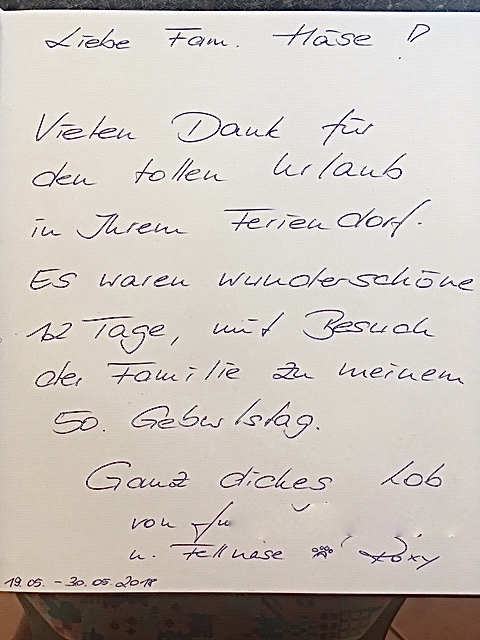 Liebe Fam. Häse !
Vielen Dank für
den tollen Urlaub
in Ihrem Feriendorf.
Es waren wunderschöne
12 Tage, mit Besuch
der Familie zu meinem
50. Geburtstag.
Ganz dickes Lob
von
u. Fellnase Roxy
19.05. - 30.05.2018